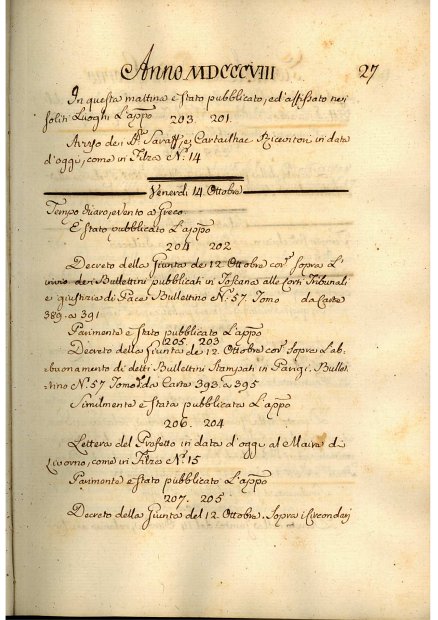 Anno MDCCCVIII 27
In questa mattina è stato pubblicato, ed'affissato nei
soliti Luoghi L'appõ
203. 201.
Avviso dei Sri. Saraff, e Cartailhac Ricevitori in data
d'oggi, come in Filza No. 14
Venerdi 14. Ottobre
Tempo chiaro, e vento a Greco.
E' stato pubblicato L'appõ
204 202
Decreto della Giunta de 12 Ottobre corr. Sopra L'in
vivio dei Bullettini pubblicati in Toscana alle Corti Tribunali
e giustizia di Pace Bullettino No. 57. Tomo da Carte
389. a 391
Parimente è stato pubblicato L'appõ
205. 203
Decreto della Giunta de 12. Ottobre corr. Sopra L'ab-
buonamento di detti Bullettini Stampati in Parigi. Bullet-
tino No. 57 Tomo da Carte 393. a 395
Similmente è stata pubblicata L'appõ
206. 204
Lettera del Prefetto in data d'oggi al Maire di
Livorno, come in Filza No. 15
Parimente è stato pubblicato L'appõ
207. 205
Decreto della Giunta del 12. Ottobre. Sopra i Circondarj